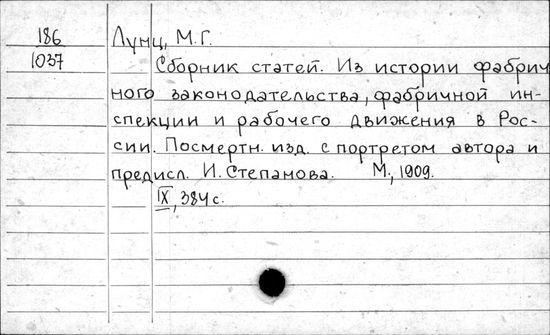 186
1037
Лунц, М.Г.
Сборник статей. Из истории фабрич
ного законодательства, фабричной ин-
спекции и рабочего движения в Рос-
сии. Посмертн. изд. с портретом автора и
предисл. И. Степанова. М., 1909.
IX, 384 с.